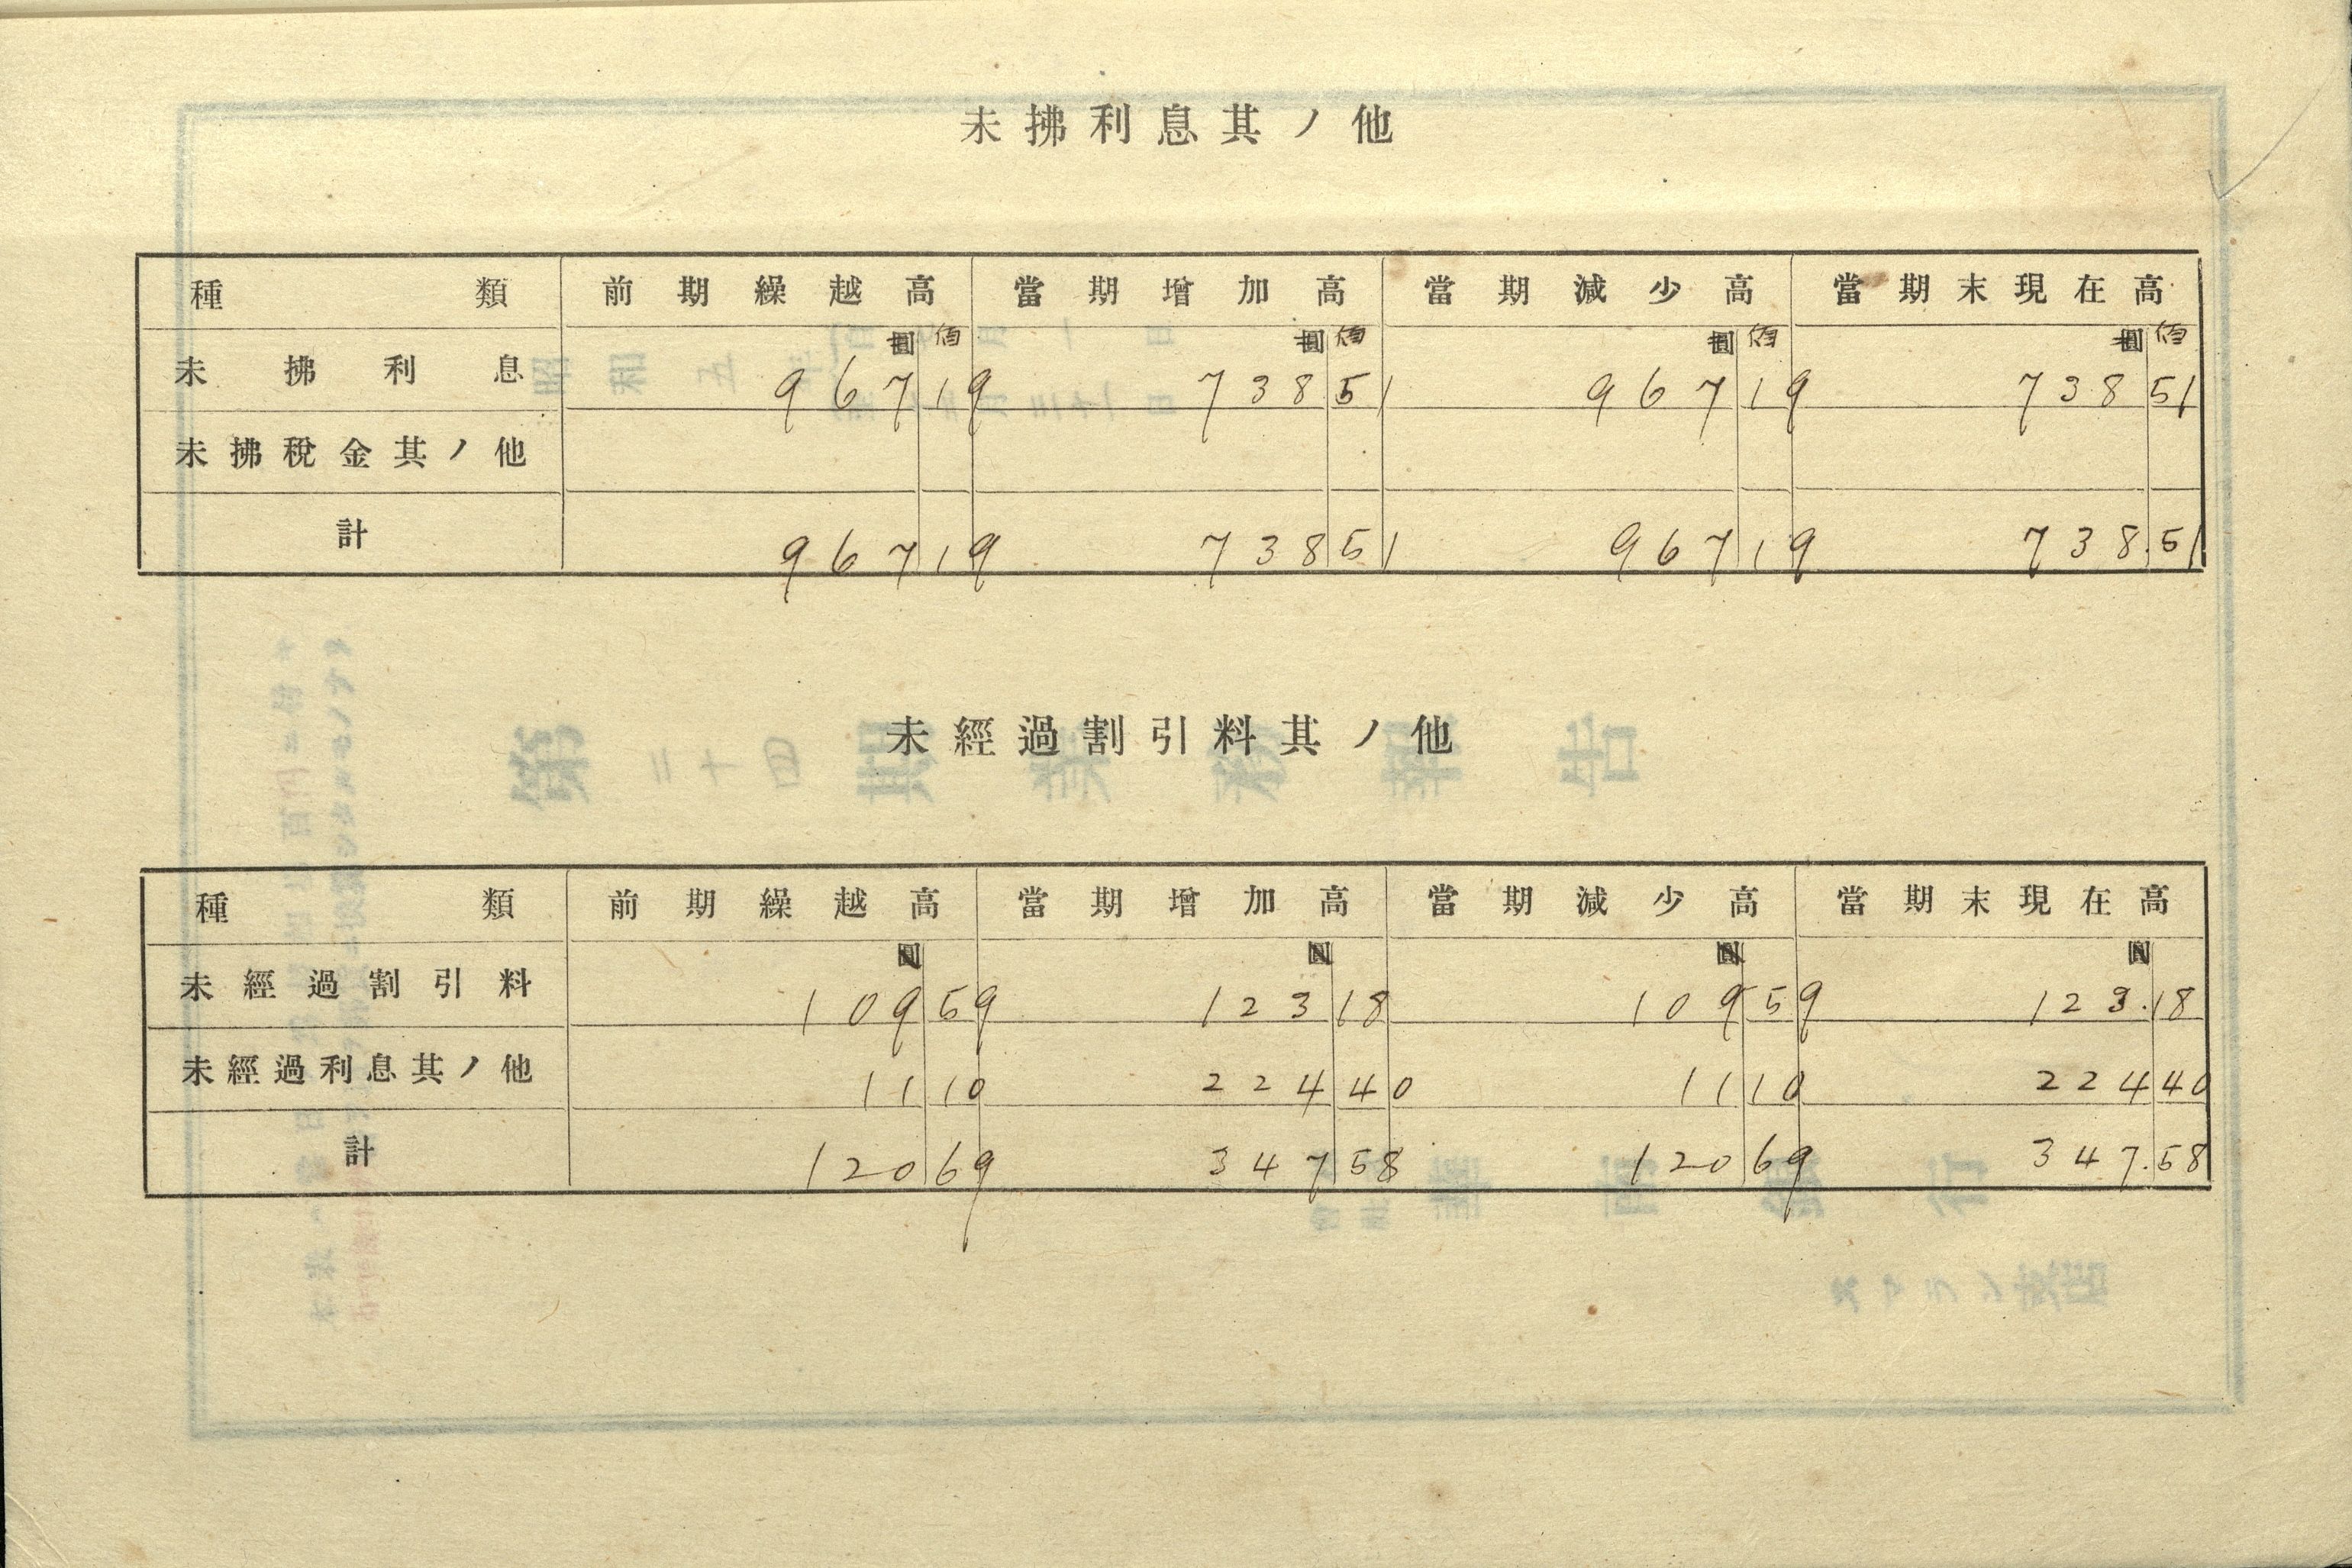 未拂利息其ノ他
種類 前期繰越高 當期增加高 當期減少高 當期末現在高
未拂利息 967 19 738 51 967 19 738 51
未拂稅金其ノ他
計 967 19 738 51 967 19 738.51
未經過割引料其ノ他
種類 前期繰越高 當期增加高 當期減少高 當期末現在高
圓 圓 圓 圓
未經過割引料 109 59 123 18 109 59 123.18
未經過利息其ノ他 11 10 224 40 11 10 224 40
計 120 69 347 58 120 69 347.58